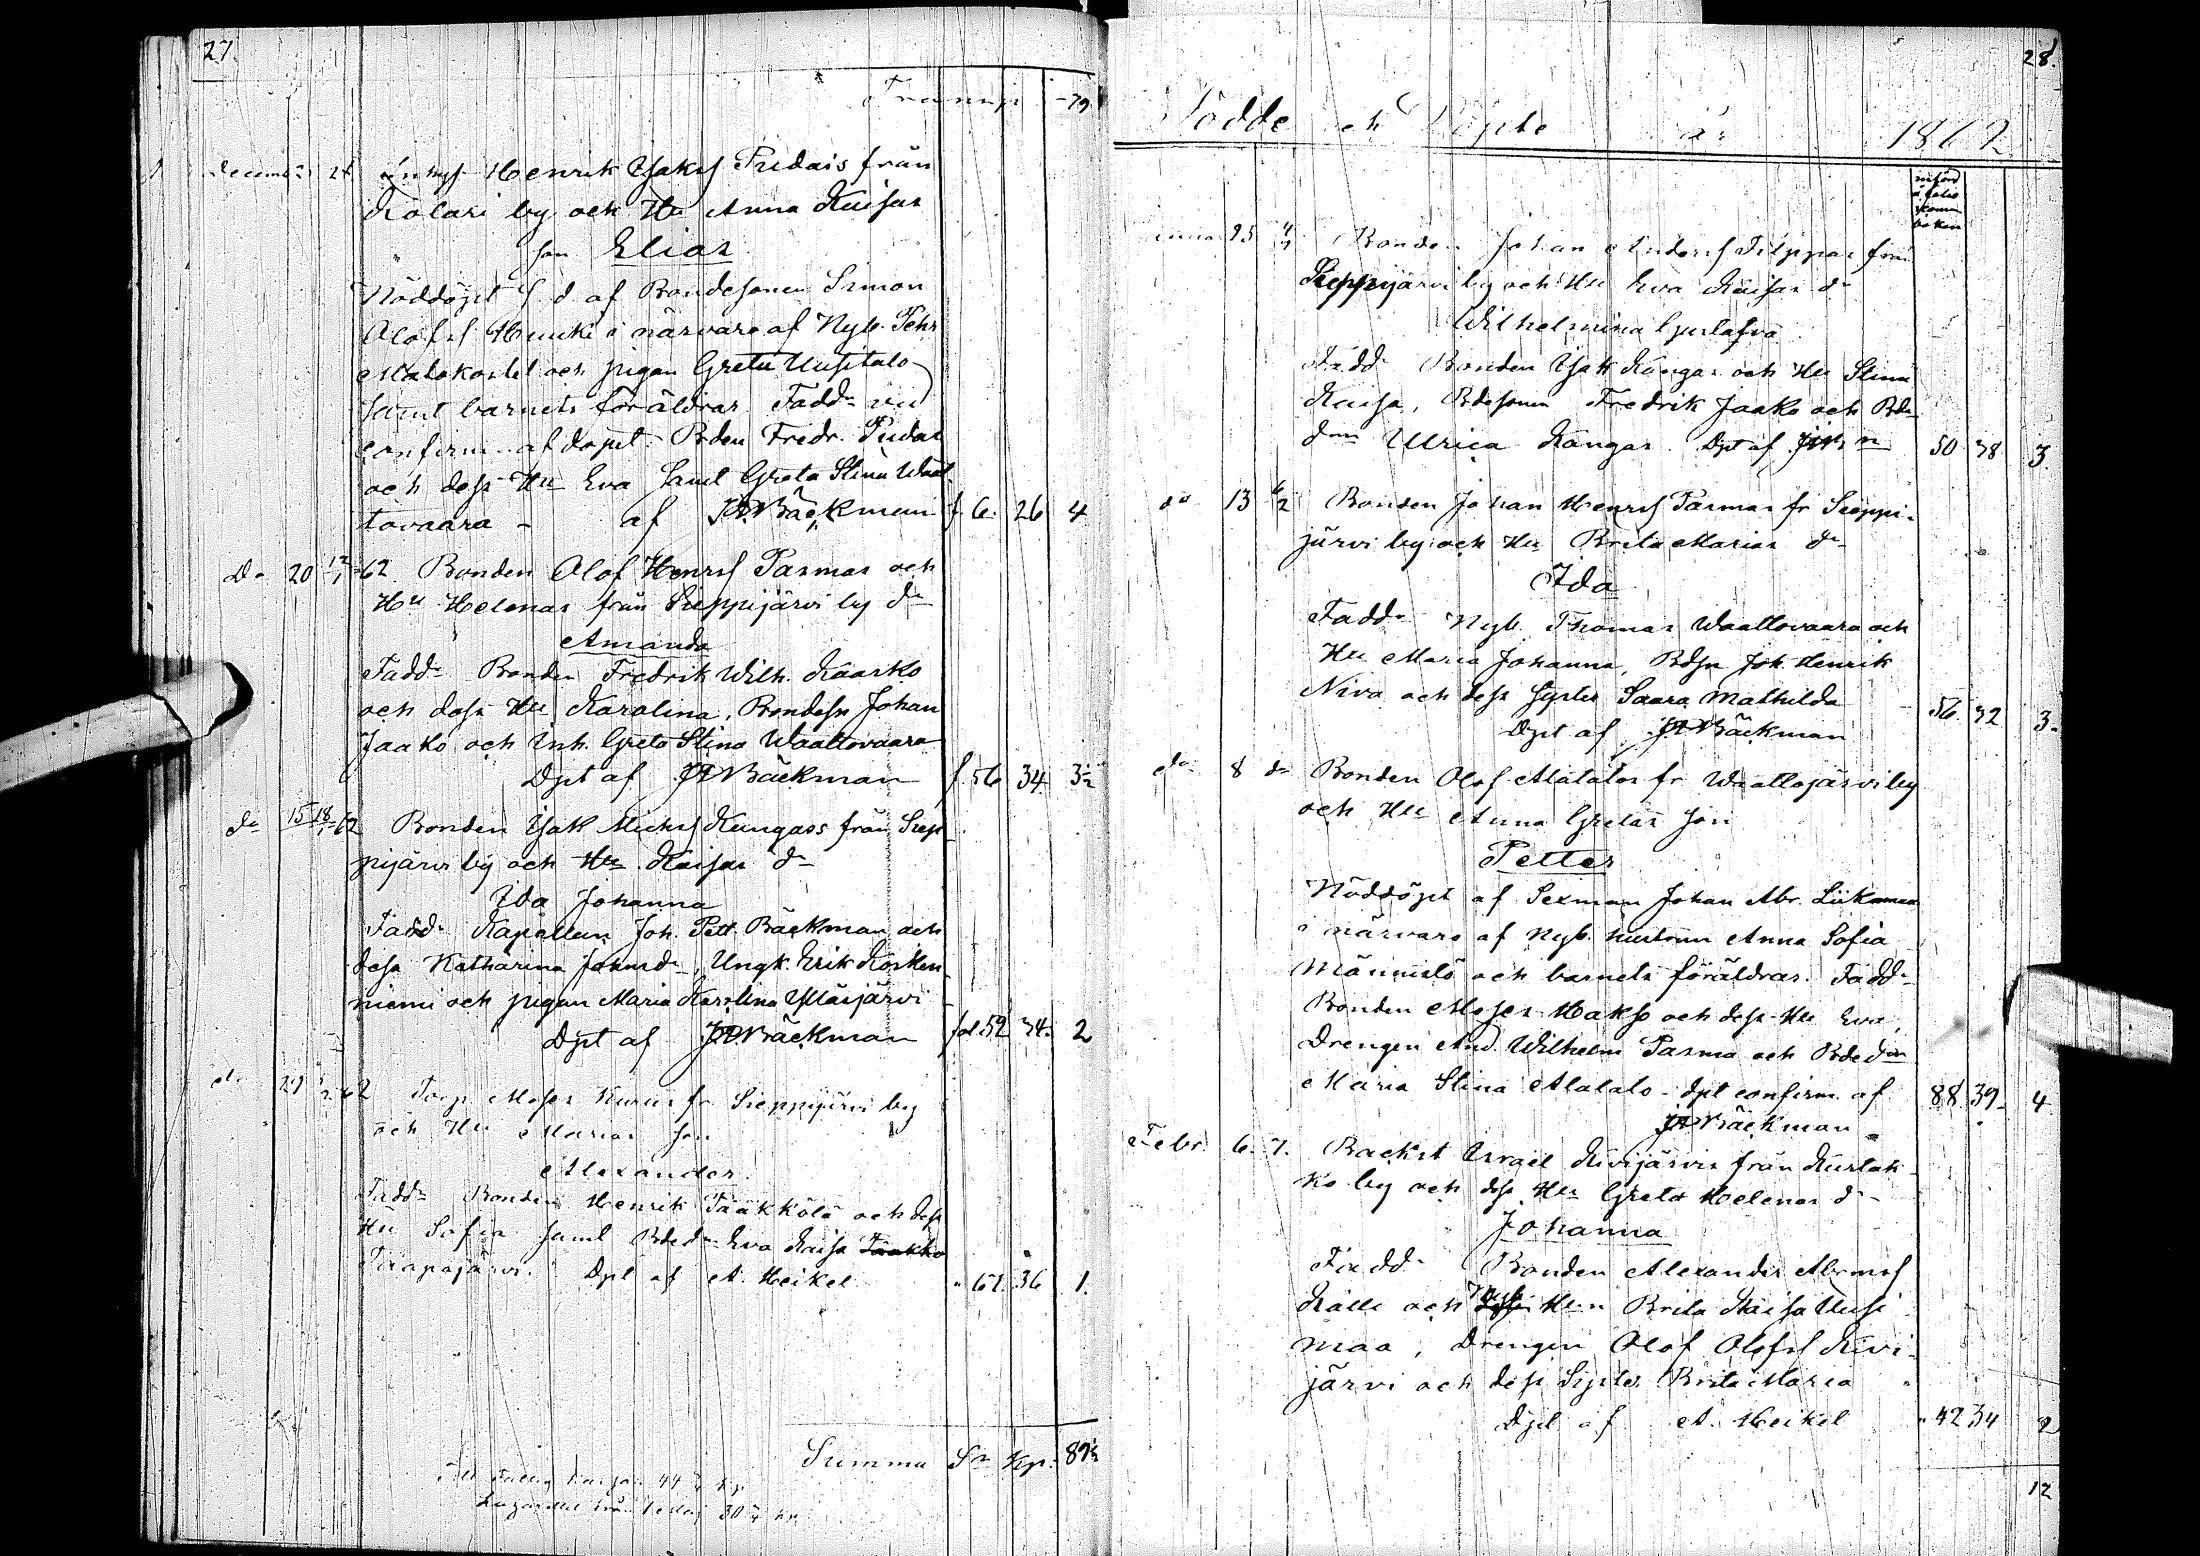 27.
Transp. 79.
December 26 Inhys Henrik Isaks Pudais från
Kolari by och Hu Anna Kaisas
son Elias
Nöddöpt s d af Bondesonen Simon
Olofs Huuki i närvaro af Nyb. Pehr
Matokortel och pigan Greta Uusitalo
samt barnets föräldrar. Fadd. vid
confirm. af dopet: Bden Fredr. Pudas
och dess Hu Eva samt Greta Stina Waat-
tovaara - af JABäckman f. 6. 26 4
Do 20 12/1 62 Bonden Olof Henrs Parmas och
Hu Helenas från Sieppijärvi by dr
Amanda
Fadd. Bonden Fredrik Wilh. Kaarko
och dess Hu Karolina, Bondesn Johan
Jaako och Inh. Greta Stina Waattovaara
Dpt af JABäckman f. 56 34 3½
do 15 18/1 62 Bonden Isak Michs Kungass från Siep
pijärvi by och Hu Kaisas dr
Ida Johanna
Fadd. Kapellan Joh. Pett. Bäckman och
dess Katharina Johansdr, Ungk. Erik Kosken-
niemi och pigan Maria Karolina Ylläsjärvi
Dpt af JABäckman fol. 52 34. 2
do 29 62 Torp. Moses Kurus fr Sieppijärvi by
och Hu Marias son
Alexander
Fadd. Bonden Henrik Tääkkölä och dess
Hu Sofia samt Bdedr Eva Kaisa Taakko
Tiapajärvi. Dpt af A. Heikel " 67. 36 1.
Summa Sr Kp. 89½
28.
Födde och Döpte år 1862
införd
å folio
komm
boken
25 Bonden Johan Anders Filppas från
Sieppijärvi by och Hu Eva Kaisas dr
Wilhelmina Gustafva
Fadd. Bonden Isak Kongas och Hu Stina
Kaisa, Bdesonen Fredrik Jaako och Bde
dottr Ulrica Kangas. Dpt af JABn 50 38 3.
do 13 6/2 Bonden Johan Henrs Parmas fr Sieppi-
järvi by och Hu Brita Marias dr
Ida
Fadd. Nyb. Thomas Waattovaara och
Hu Maria Johanna, Bdsn Joh. Henrik
Niva och dess syster Saara Mathilda
Dpt af JABäckman 56. 32 3.
do 8 do Bonden Olof Alatalos fr Waattojärvi by
och Hu Anna Gretas son
Petter
Nöddöpt af Sexman Johan Abr. Liikamaa
i närvaro af Nyb. hustrun Anna Sofia
Männistö och barnets föräldrar. Fadd.
Bonden Moses Hakso och dess Hu Eva,
Drengen And. Wilhelm Parma och Bdedtn
Maria Stina Alatalo - dpt confirm. af 88. 39 4
JABäckman
Febr. 6. 7. Backst Israel Kivijärvis från Kurtak-
ko by och dess Hu Greta Helenas dr
Johanna
Fadd. Bonden Alexander Abrms
Kalli och Hun Brita Kaisa Uusi
maa, Drengen Olof Olofs Kivi-
järvi och dess Syster Brita Maria
Dpt af A. Heikel " 42 34 2
12